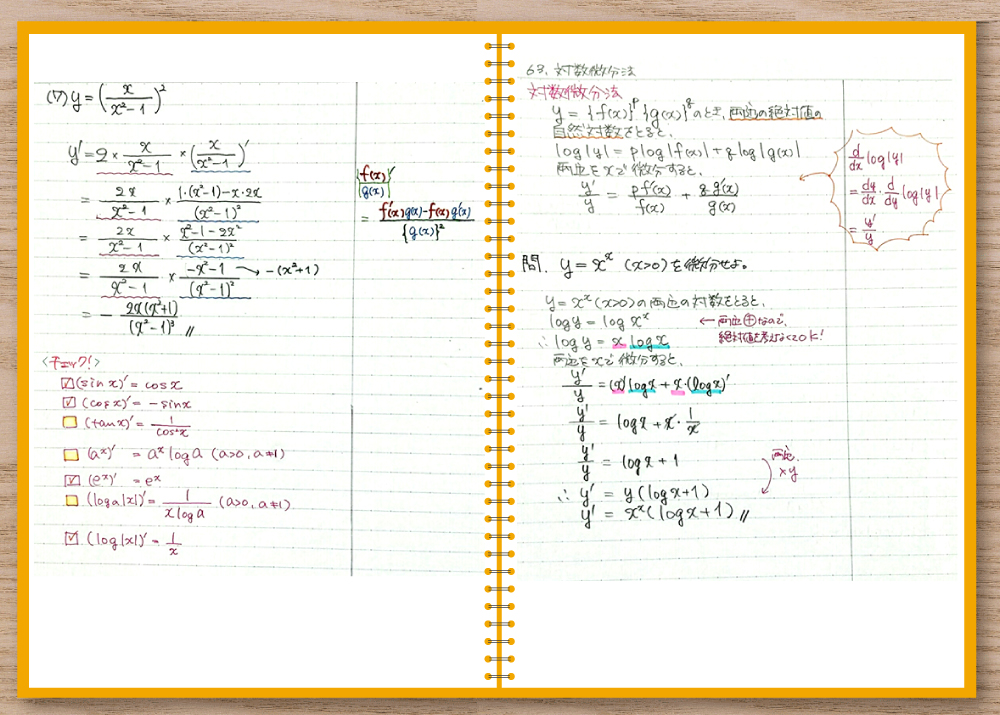 (ワ) y = (x/(x²-1))²
y' = 2 × x/(x²-1) × (x/(x²-1))'
= 2x/(x²-1) × (1·(x²-1)-x·2x)/(x²-1)²
= 2x/(x²-1) × (x²-1-2x²)/(x²-1)²
= 2x/(x²-1) × (-x²-1)/(x²-1)² → -(x²+1)
= - 2x(x²+1)/(x²-1)³ //
{f(x)/g(x)}'
= (f'(x)g(x)-f(x)g'(x))/{g(x)}²
〈チェック!〉
☑ (sin x)' = cos x
☑ (cos x)' = -sin x
□ (tan x)' = 1/cos²x
□ (aˣ)' = aˣ log a (a>0, a≠1)
☑ (eˣ)' = eˣ
□ (log a|x|)' = 1/(x log a) (a>0, a≠1)
☑ (log|x|)' = 1/x
63. 対数微分法
対数微分法
y = {f(x)}ᵖ{g(x)}^q のとき、両辺の絶対値の
自然対数をとると、
log|y| = p log|f(x)| + q log|g(x)|
両辺をxで微分すると、
y'/y = pf'(x)/f(x) + q·g'(x)/g(x)
d/dx log|y|
= dy/dx · d/dy log|y|
= y'/y
問. y = xˣ (x>0) を微分せよ。
y = xˣ (x>0) の両辺の対数をとると、
log y = log xˣ
← 両辺⊕なので、
絶対値を考えなくてOK!
∴ log y = x log x
両辺をxで微分すると、
y'/y = (x)' log x + x·(log x)'
y'/y = log x + x·1/x
y'/y = log x + 1
両辺
×y
∴ y' = y(log x+1)
y' = xˣ(log x+1) //